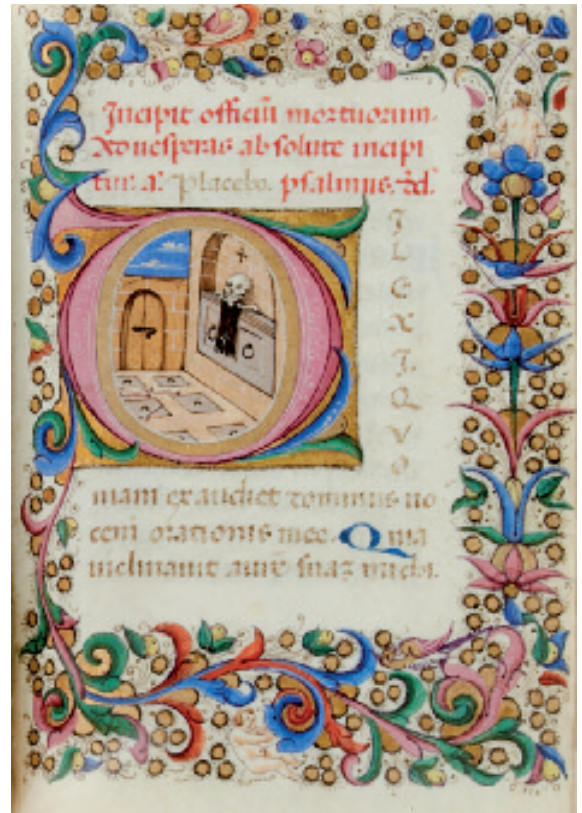 Incipit officiũ mortuorum.
Ad uesperas absolute incipi
tur añ. Placebo. psalmus. dd.
D
I
L
E
X
I
Q
V
O
niam exaudiet dominus uo
cem orationis mee. Quia
inclinauit aurẽ suaz michi.